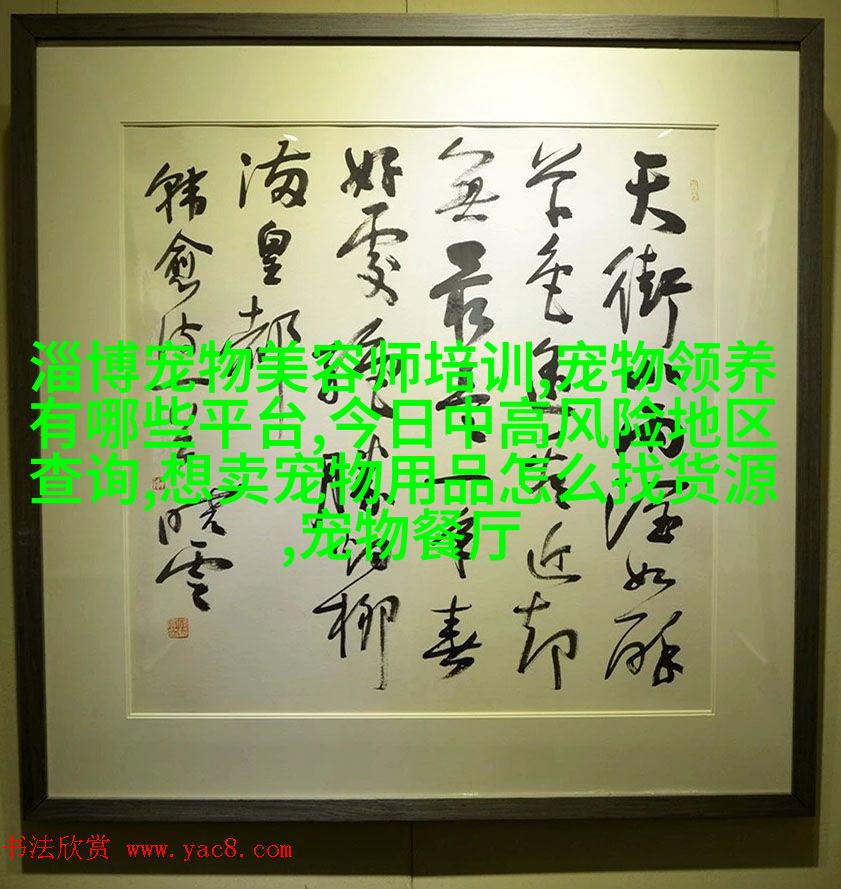 天街小雨潤如酥
草色遙看近却
無最是一年春
好處絕勝烟柳
滿皇都
韓愈詩
淄博宠物美容师培训,宠物领养
有哪些平台,今日中高风险地区
查询,想卖宠物用品怎么找货源
,宠物餐厅
书法欣赏 www.yac8.com